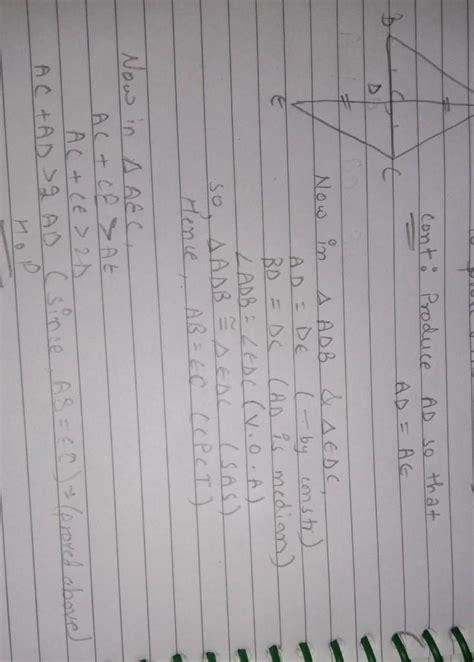 B
D
C
E
const: Produce AD so that
AD = AE
Now in Δ ADB & ΔEDC,
AD = DE (- by constr)
BD = DC (AD is median)
∠ADB = ∠EDC (V.O.A)
so, Δ ADB ≅ Δ EDC (SAS)
Hence, AB = EC (CPCT)
Now in Δ AEC,
AC + CE > AE
AC + CE > 2D
AC + AD > 2 AD (since, AB = EC) → (proved above)
H o P